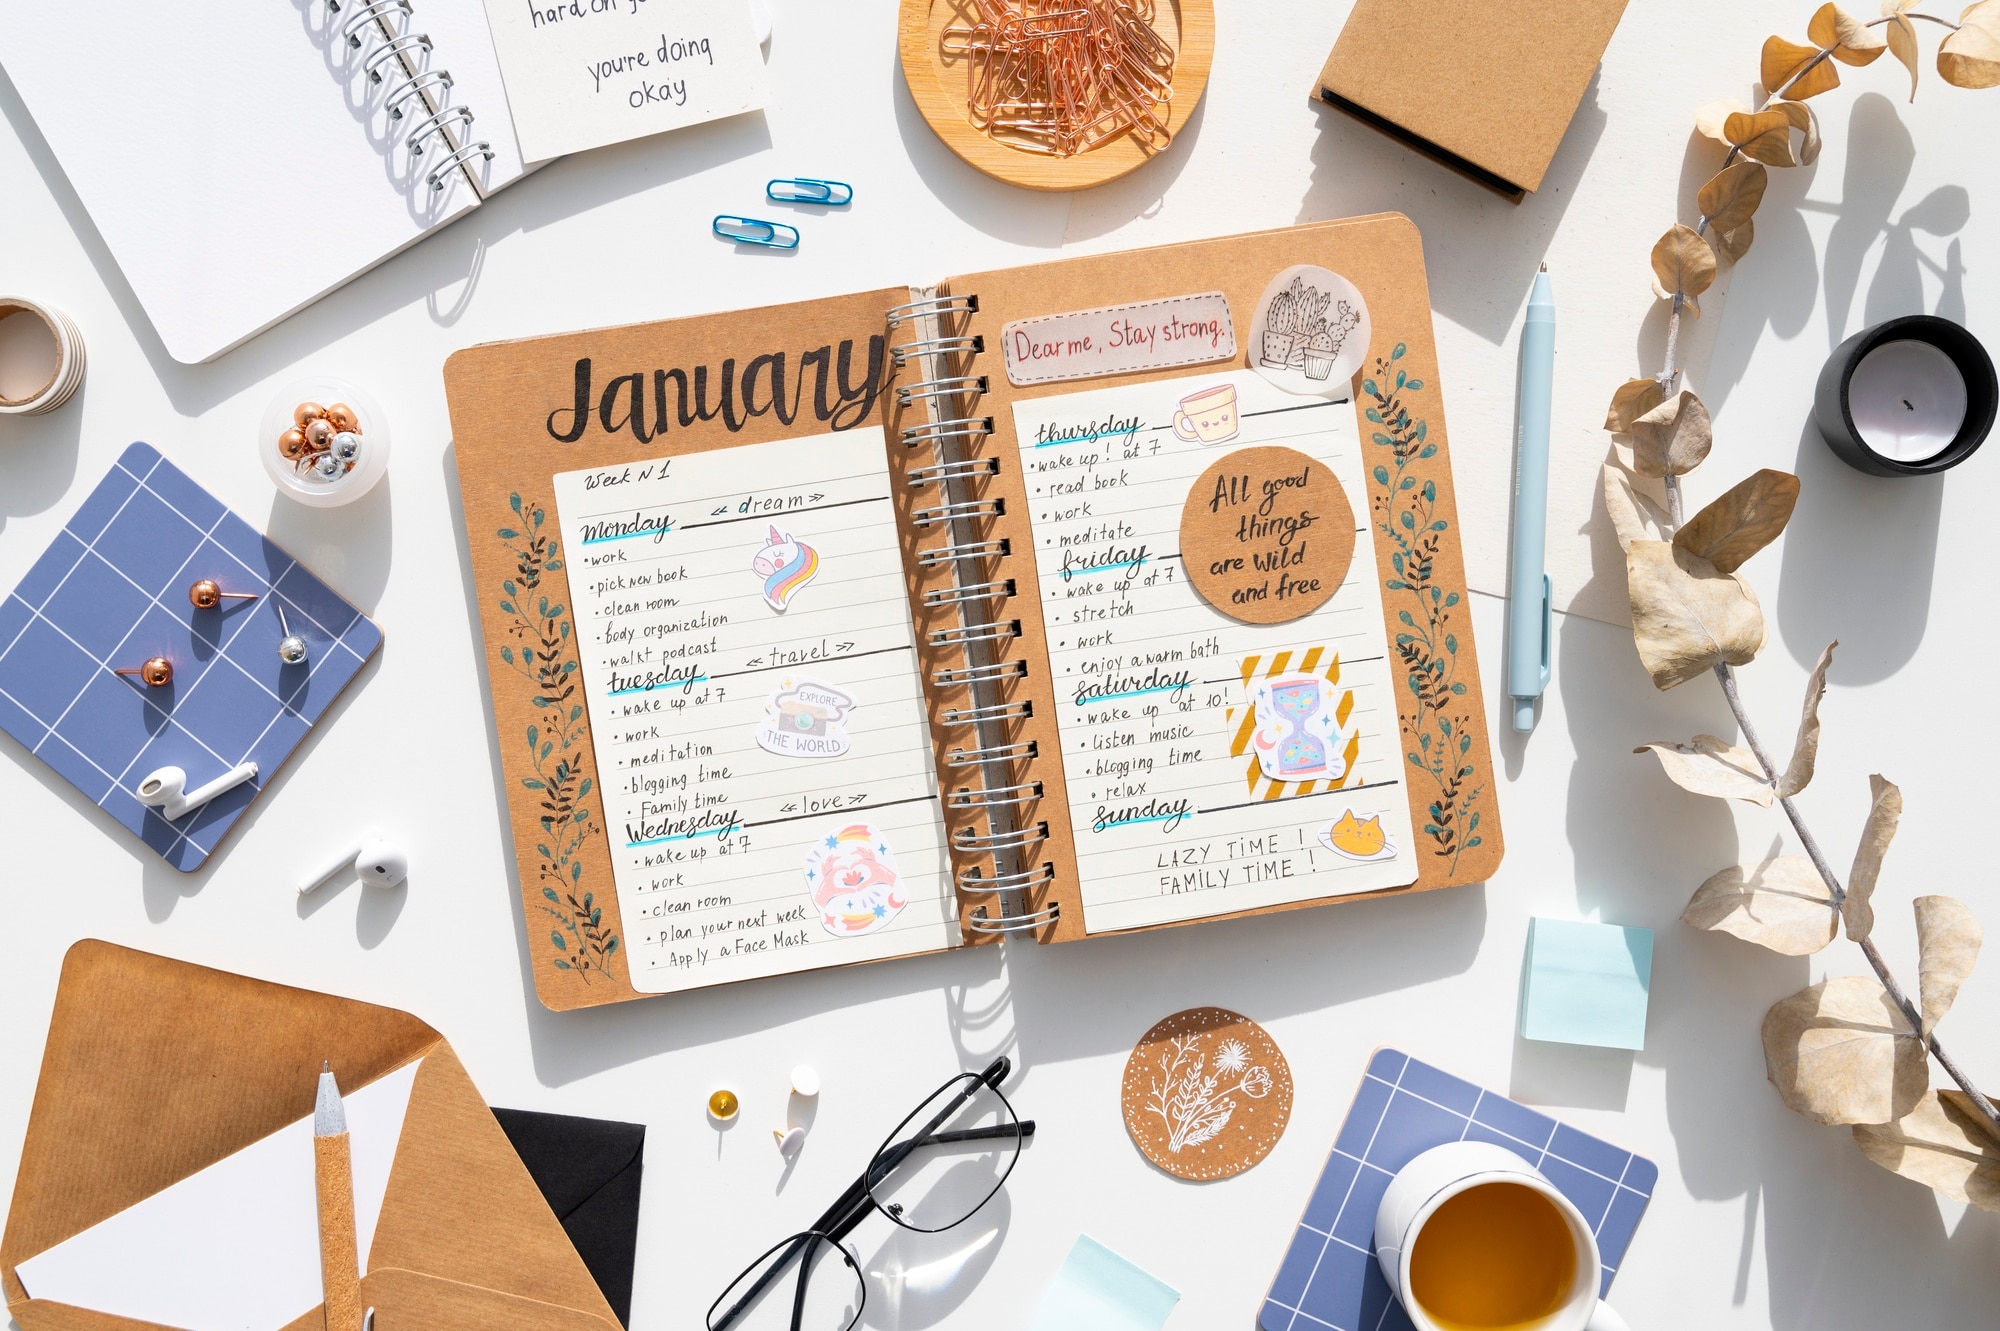 hard on
you're doing
okay
January
Week N 1
« dream »
Monday
• work
• pick new book
• clean room
• body organization
• walkt podcast
« travel »
tuesday
• wake up at 7
• work
• meditation
• blogging time
• Family time
EXPLORE
THE WORLD
« love »
Wednesday
• wake up at 7
• work
• clean room
• plan your next week
• Apply a Face Mask
Dear me, Stay strong.
thursday
• wake up! at 7
• read book
• work
• meditate
All good
things
are wild
and free
friday
• wake up at 7
• stretch
• work
• enjoy a warm bath
saturday
• wake up at 10!
• listen music
• blogging time
• relax
sunday
LAZY TIME !
FAMILY TIME !